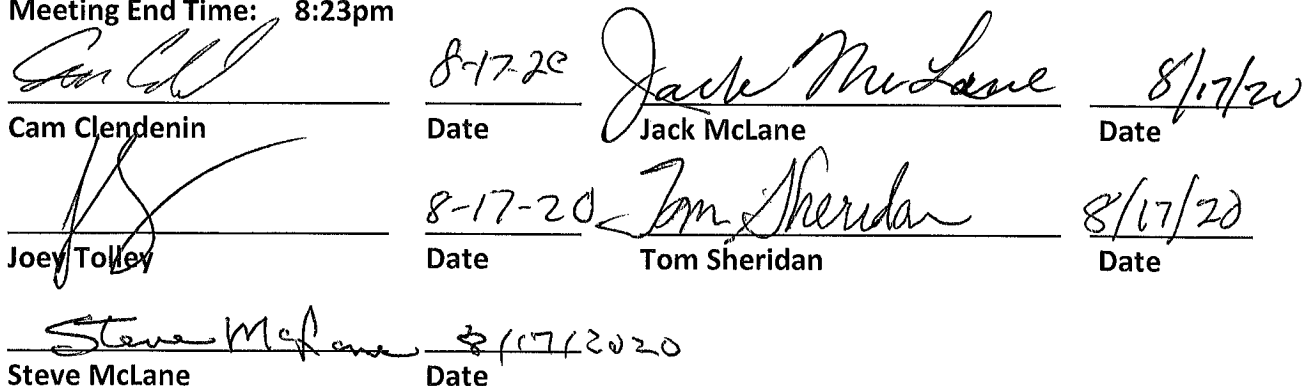 Meeting End Time: 8:23pm
8-17-20 Jack McLane 8/17/20
Cam Clendenin Date Jack McLane Date
8-17-20 Tom Sheridan 8/17/20
Joey Tolley Date Tom Sheridan Date
Steve McLane 8/17/2020
Steve McLane Date